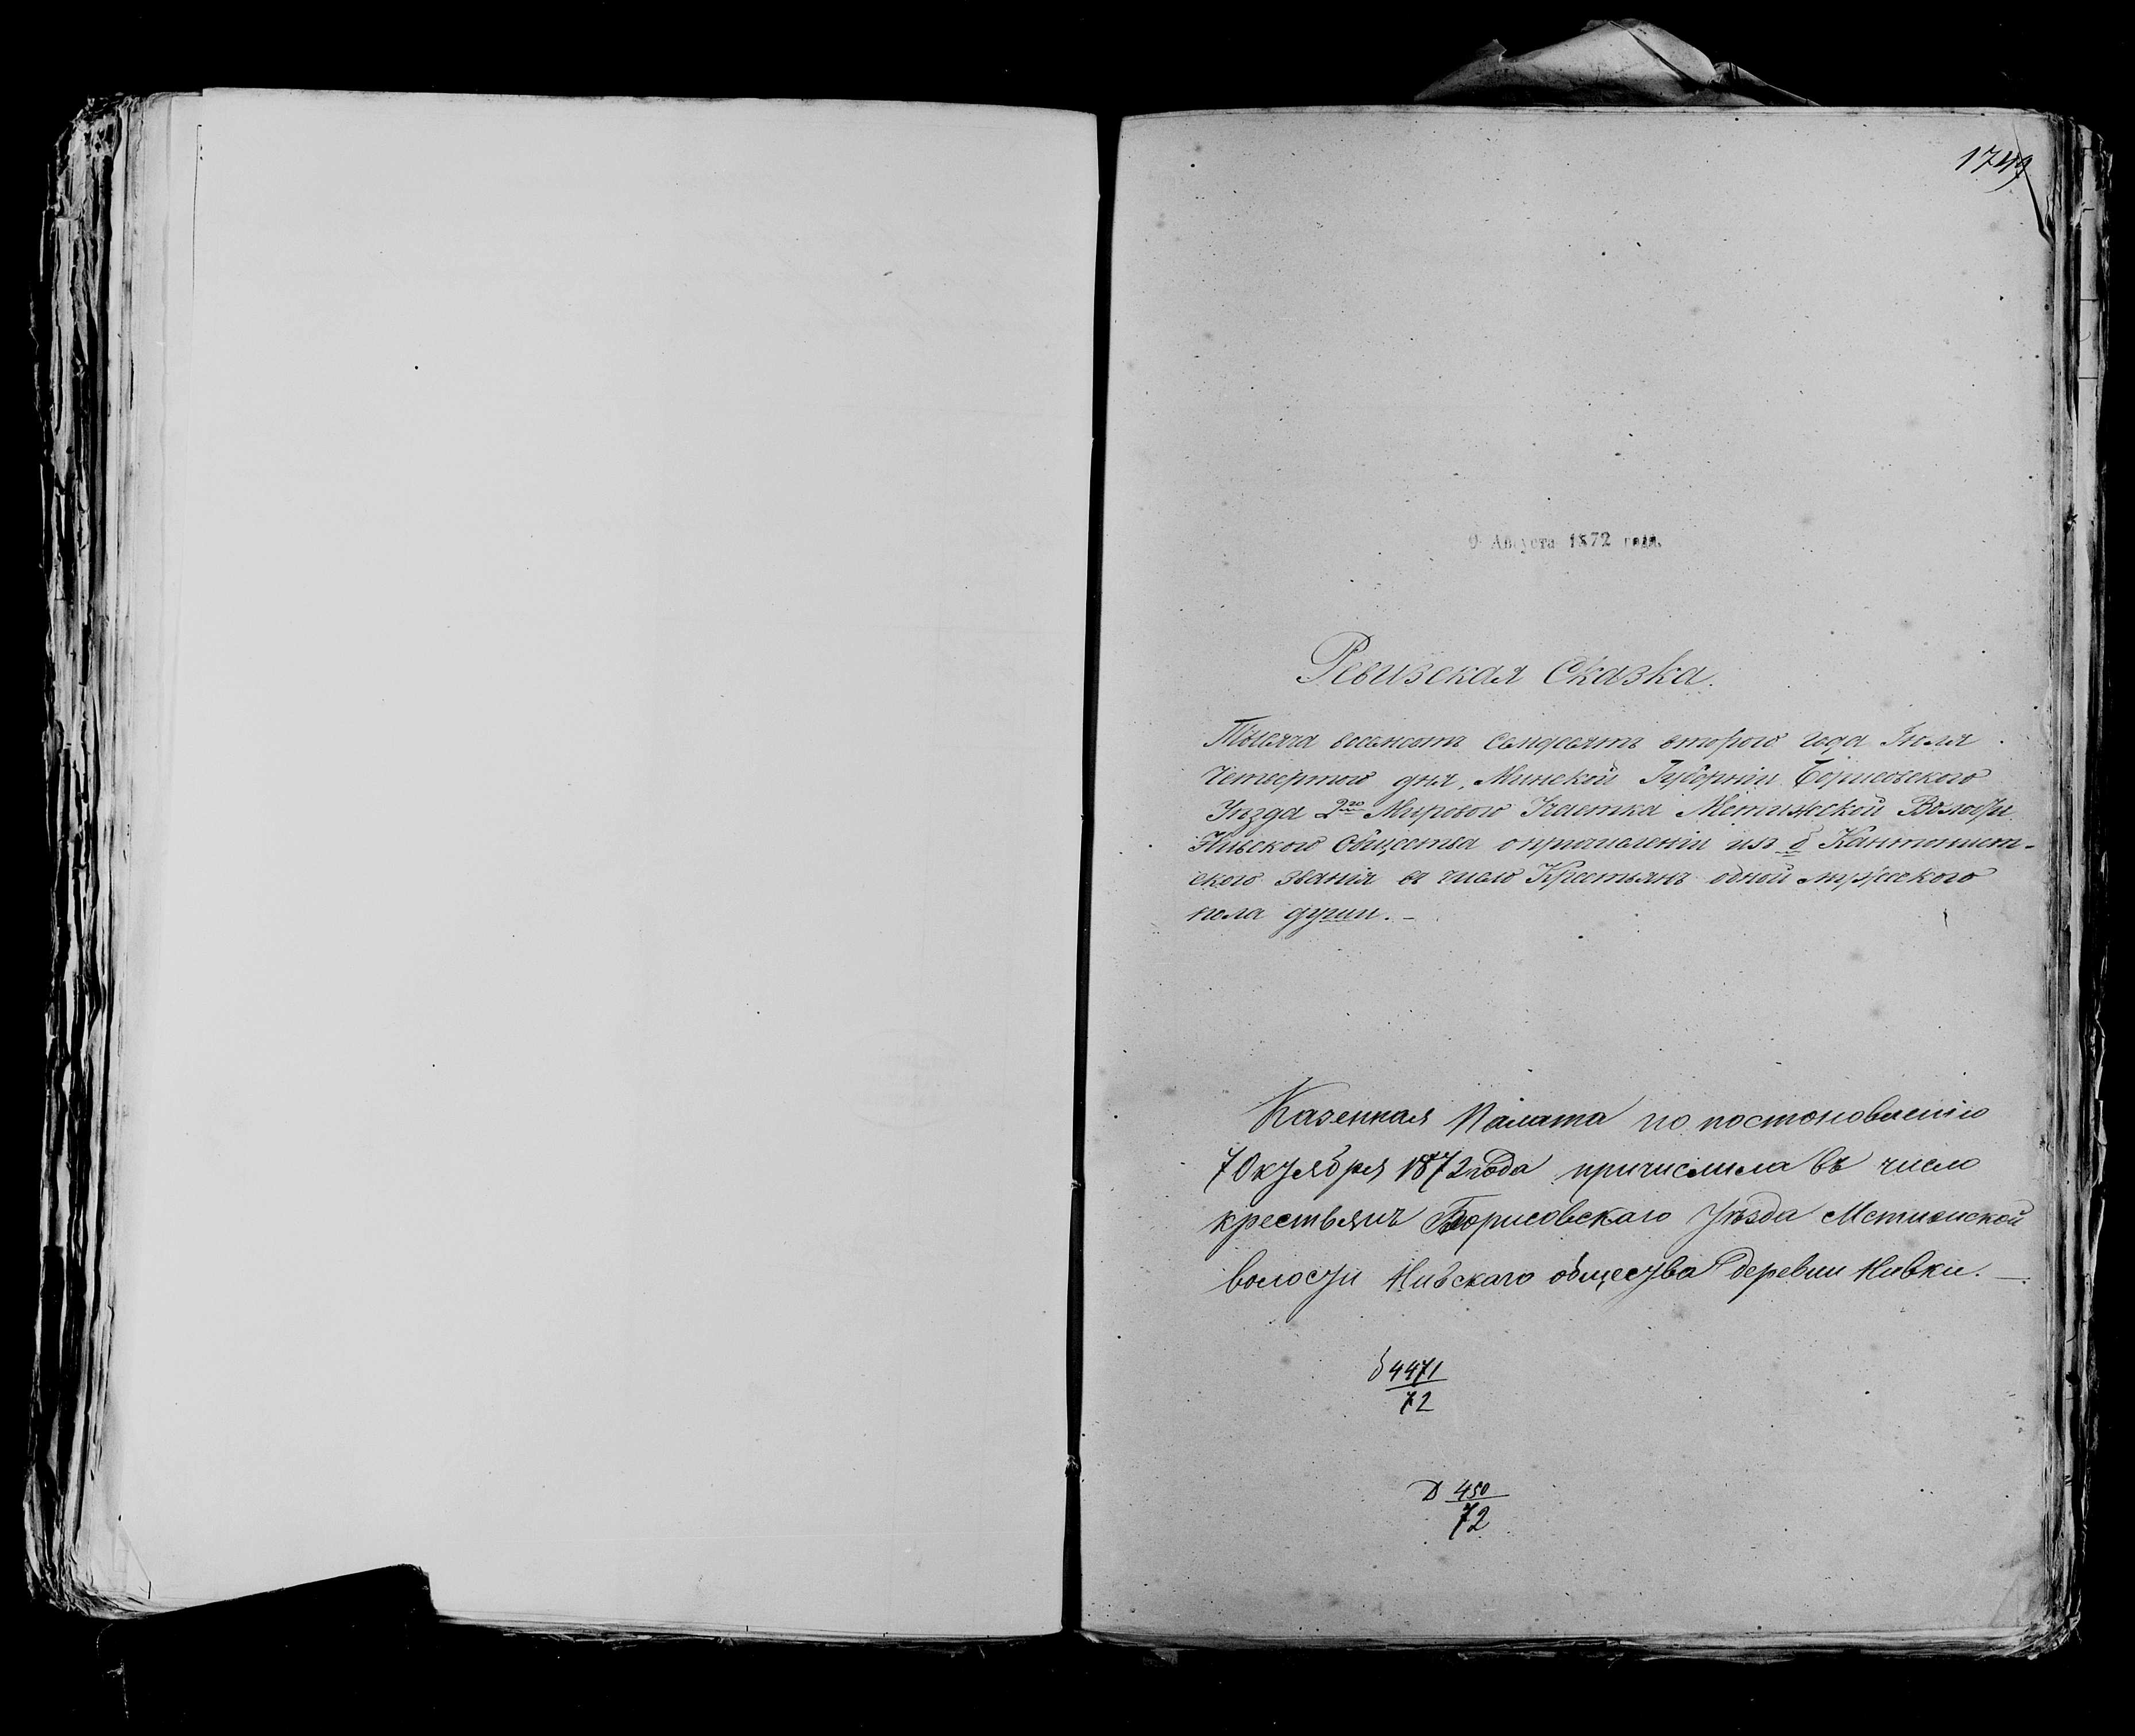 1749
9 Августа 1872 года.
Ревизская Сказка.
Тысяча восемсотъ семдесятъ второго года Іюля
Четвертого дня, Минской Губерніи Борисовского
Уѣзда 2го Мирового Участка Мстижской Волости
Нивского Общества о причисленіи изъ б Кантонист-
ского званія въ число Крестьянъ одной мужеского
пола души. -
Казенная Палата по постоновленію
7 Октября 1872 года причислила въ число
крестьянъ Борисовскаго Уѣзда Мстижской
волости Нивскаго общества деревни Нивки. —
4471
72
Д 450
72